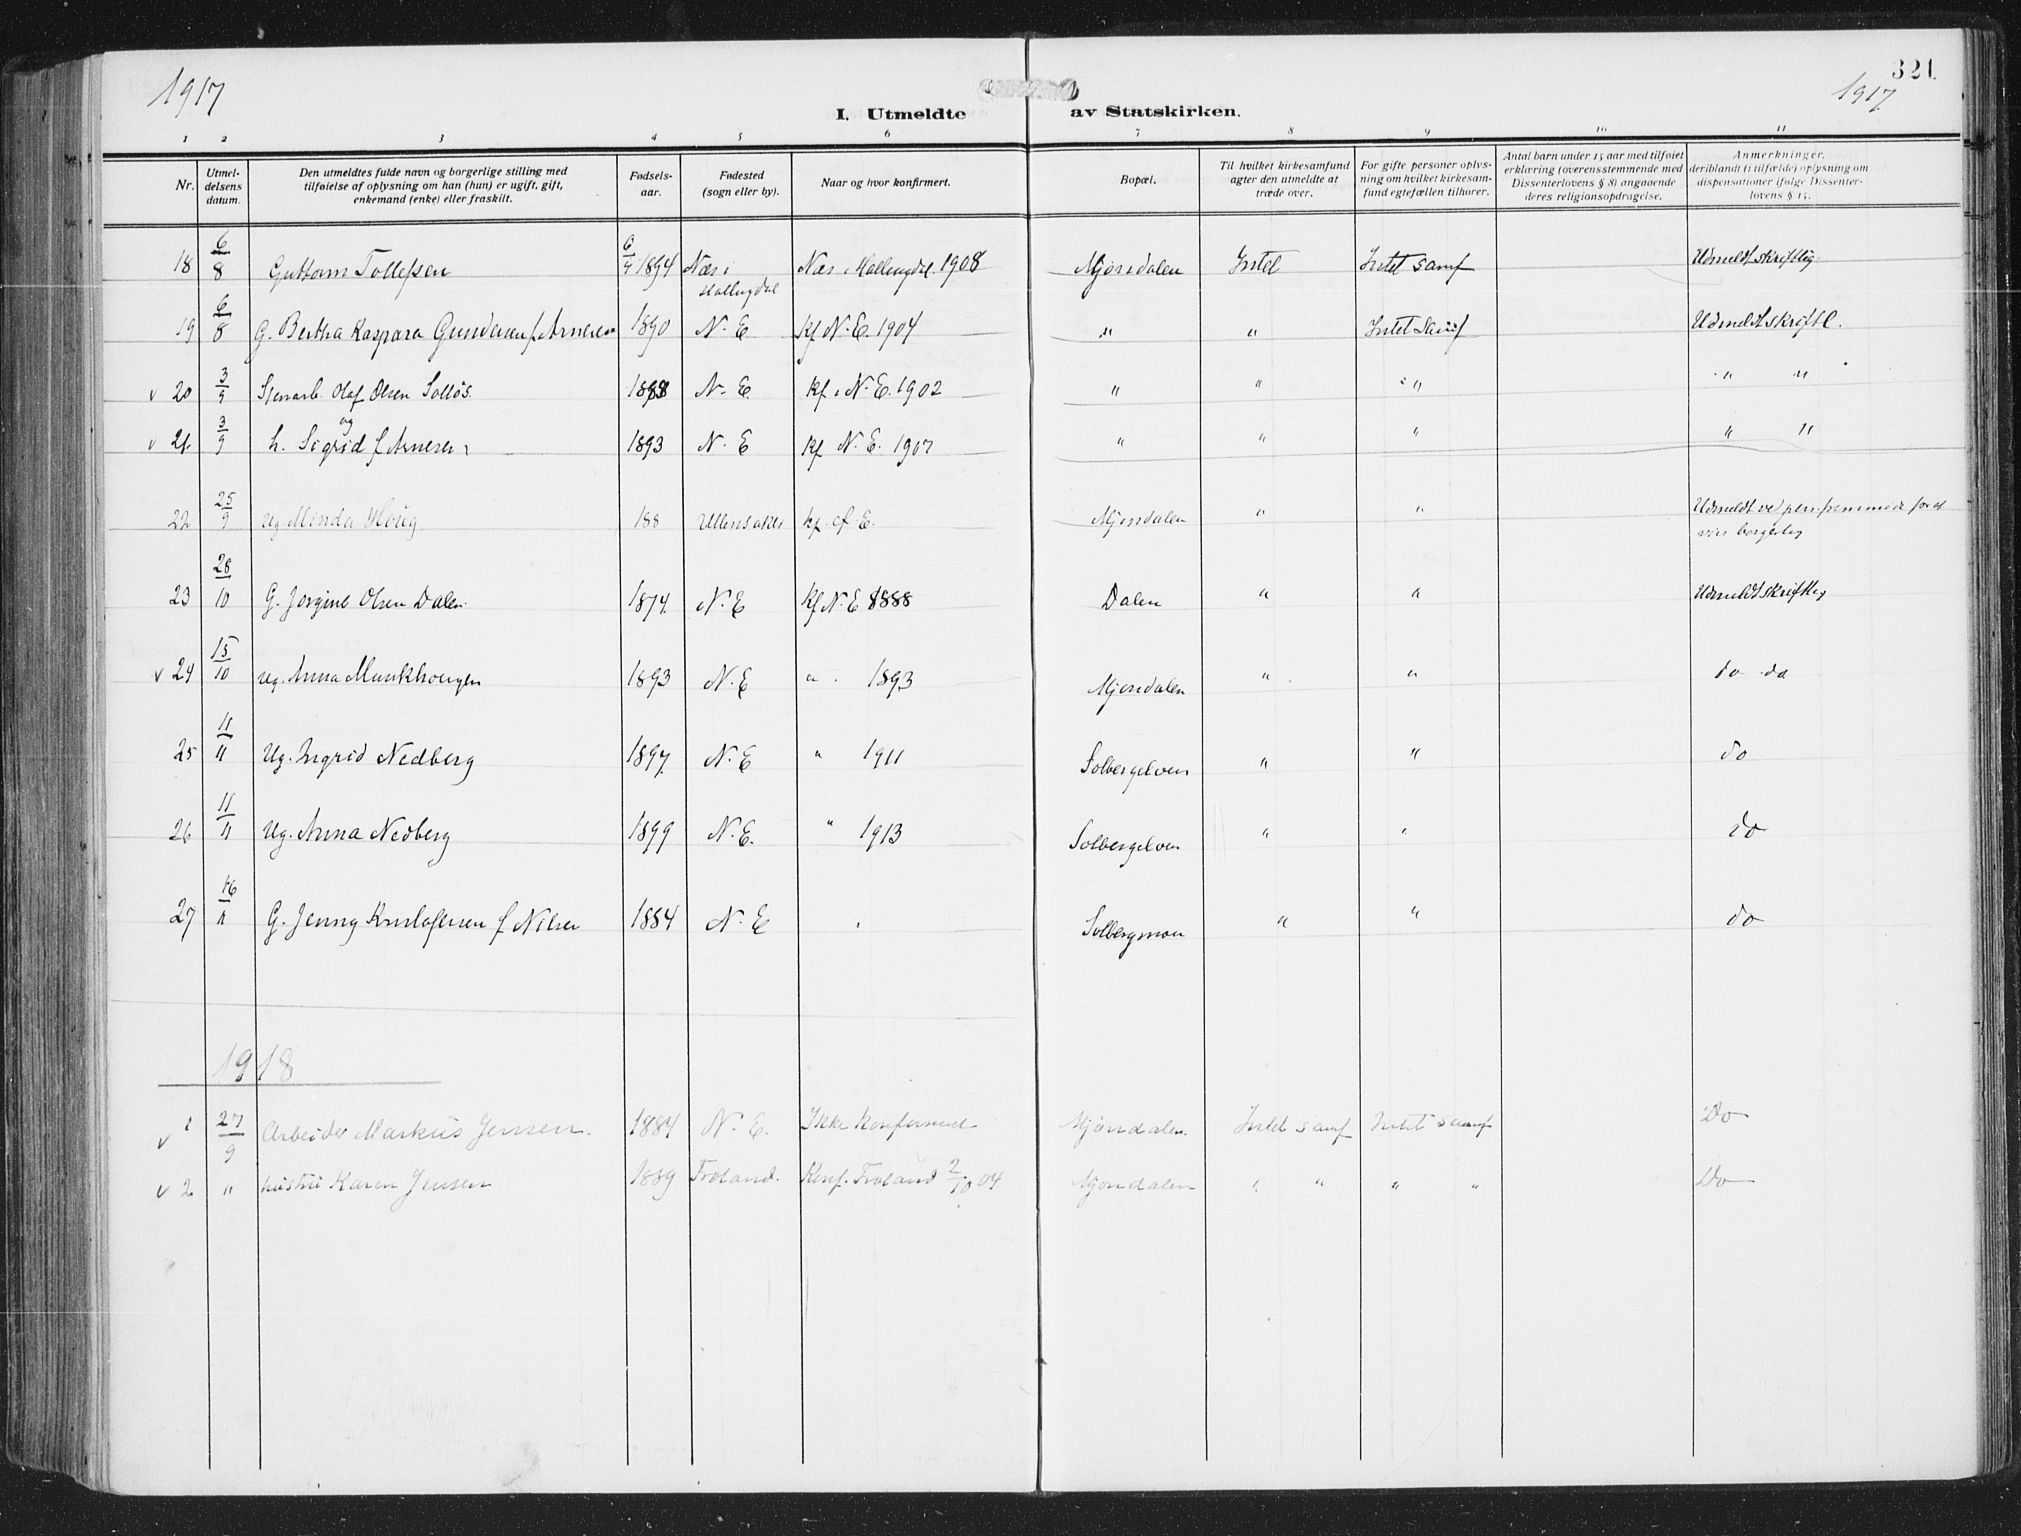 1917
321
1917
I. Utmeldte av Statskirken.
1 2 3 4 5 6 7 8 9 10 11
Nr.
Utmeldelsens datum.
Den utmeldtes fulde navn og borgerlige stilling med tilføielse af oplysning om han (hun) er ugift, gift, enkemand (enke) eller fraskilt.
Fødselsaar.
Fødested (sogn eller by).
Naar og hvor konfirmert.
Bopæl.
Til hvilket kirkesamfund agter den utmeldte at træde over.
For gifte personer oplysning om hvilket kirkesamfund egtefællen tilhører.
Antal barn under 15 aar med tilføiet erklæring (overensstemmende med Dissenterlovens § 8) angaaende deres religionsopdragelse.
Anmerkninger, deriblandt (i tilfælde) oplysning om dispensationer ifølge Dissenterlovens § 15.
18 6/8 Guttorm Tollefsen 6/4 1894 Næs i Hallingdal Næs i Hallingdal 1908 Mjøndalen Intet Intet samf Udmeldt skriftlig.
19 6/8 G. Bertha Kaspara Gundersen f. Arnesen 1890 N. E Kf N. E. 1904 " " Intet samf Udmeldt skriftl.
v 20 3/9 Stenarb. Olaf Olsen Solløs. 1888 N. E. Kf. i N. E. 1902 " " " " "
og
v 21 3/9 h. Sigrid f. Arnesen 1893 N. E Kf N. E. 1907 " " " " "
22 25/9 ug Minda Houg 188 Ullensaker Kf. af E. Mjøndalen " " Udmeldt ved
borgerlig
23 28/10 G. Jorgine Olsen Dalen. 1874. N. E Kf N. E 1888 Dalen " " Udmeldt skriftlig
v 24 15/10 ug. Anna Munkhougen 1893 N. E " 1893 Mjøndalen " " do do
25 11/11 Ug. Ingrid Nedberg 1897. N. E " 1911 Solbergelven " " do
26 11/11 Ug. Anna Nedberg 1899 N. E. " 1913 Solbergelven " " do
27 16/11 G. Jenny Kristofersen f Nilsen 1884 N. E " Solbergmoen " " do
1918
v 1 27/9 Arbeider Markus Jensen. 1884 N. E. Ikke Konfirmeret Mjøndalen. Intet samf Intet samf Do
v 2 " hustru Karen Jensen 1889 Froland. Konf. Froland 2/10 04 Mjøndalen " " " " Do